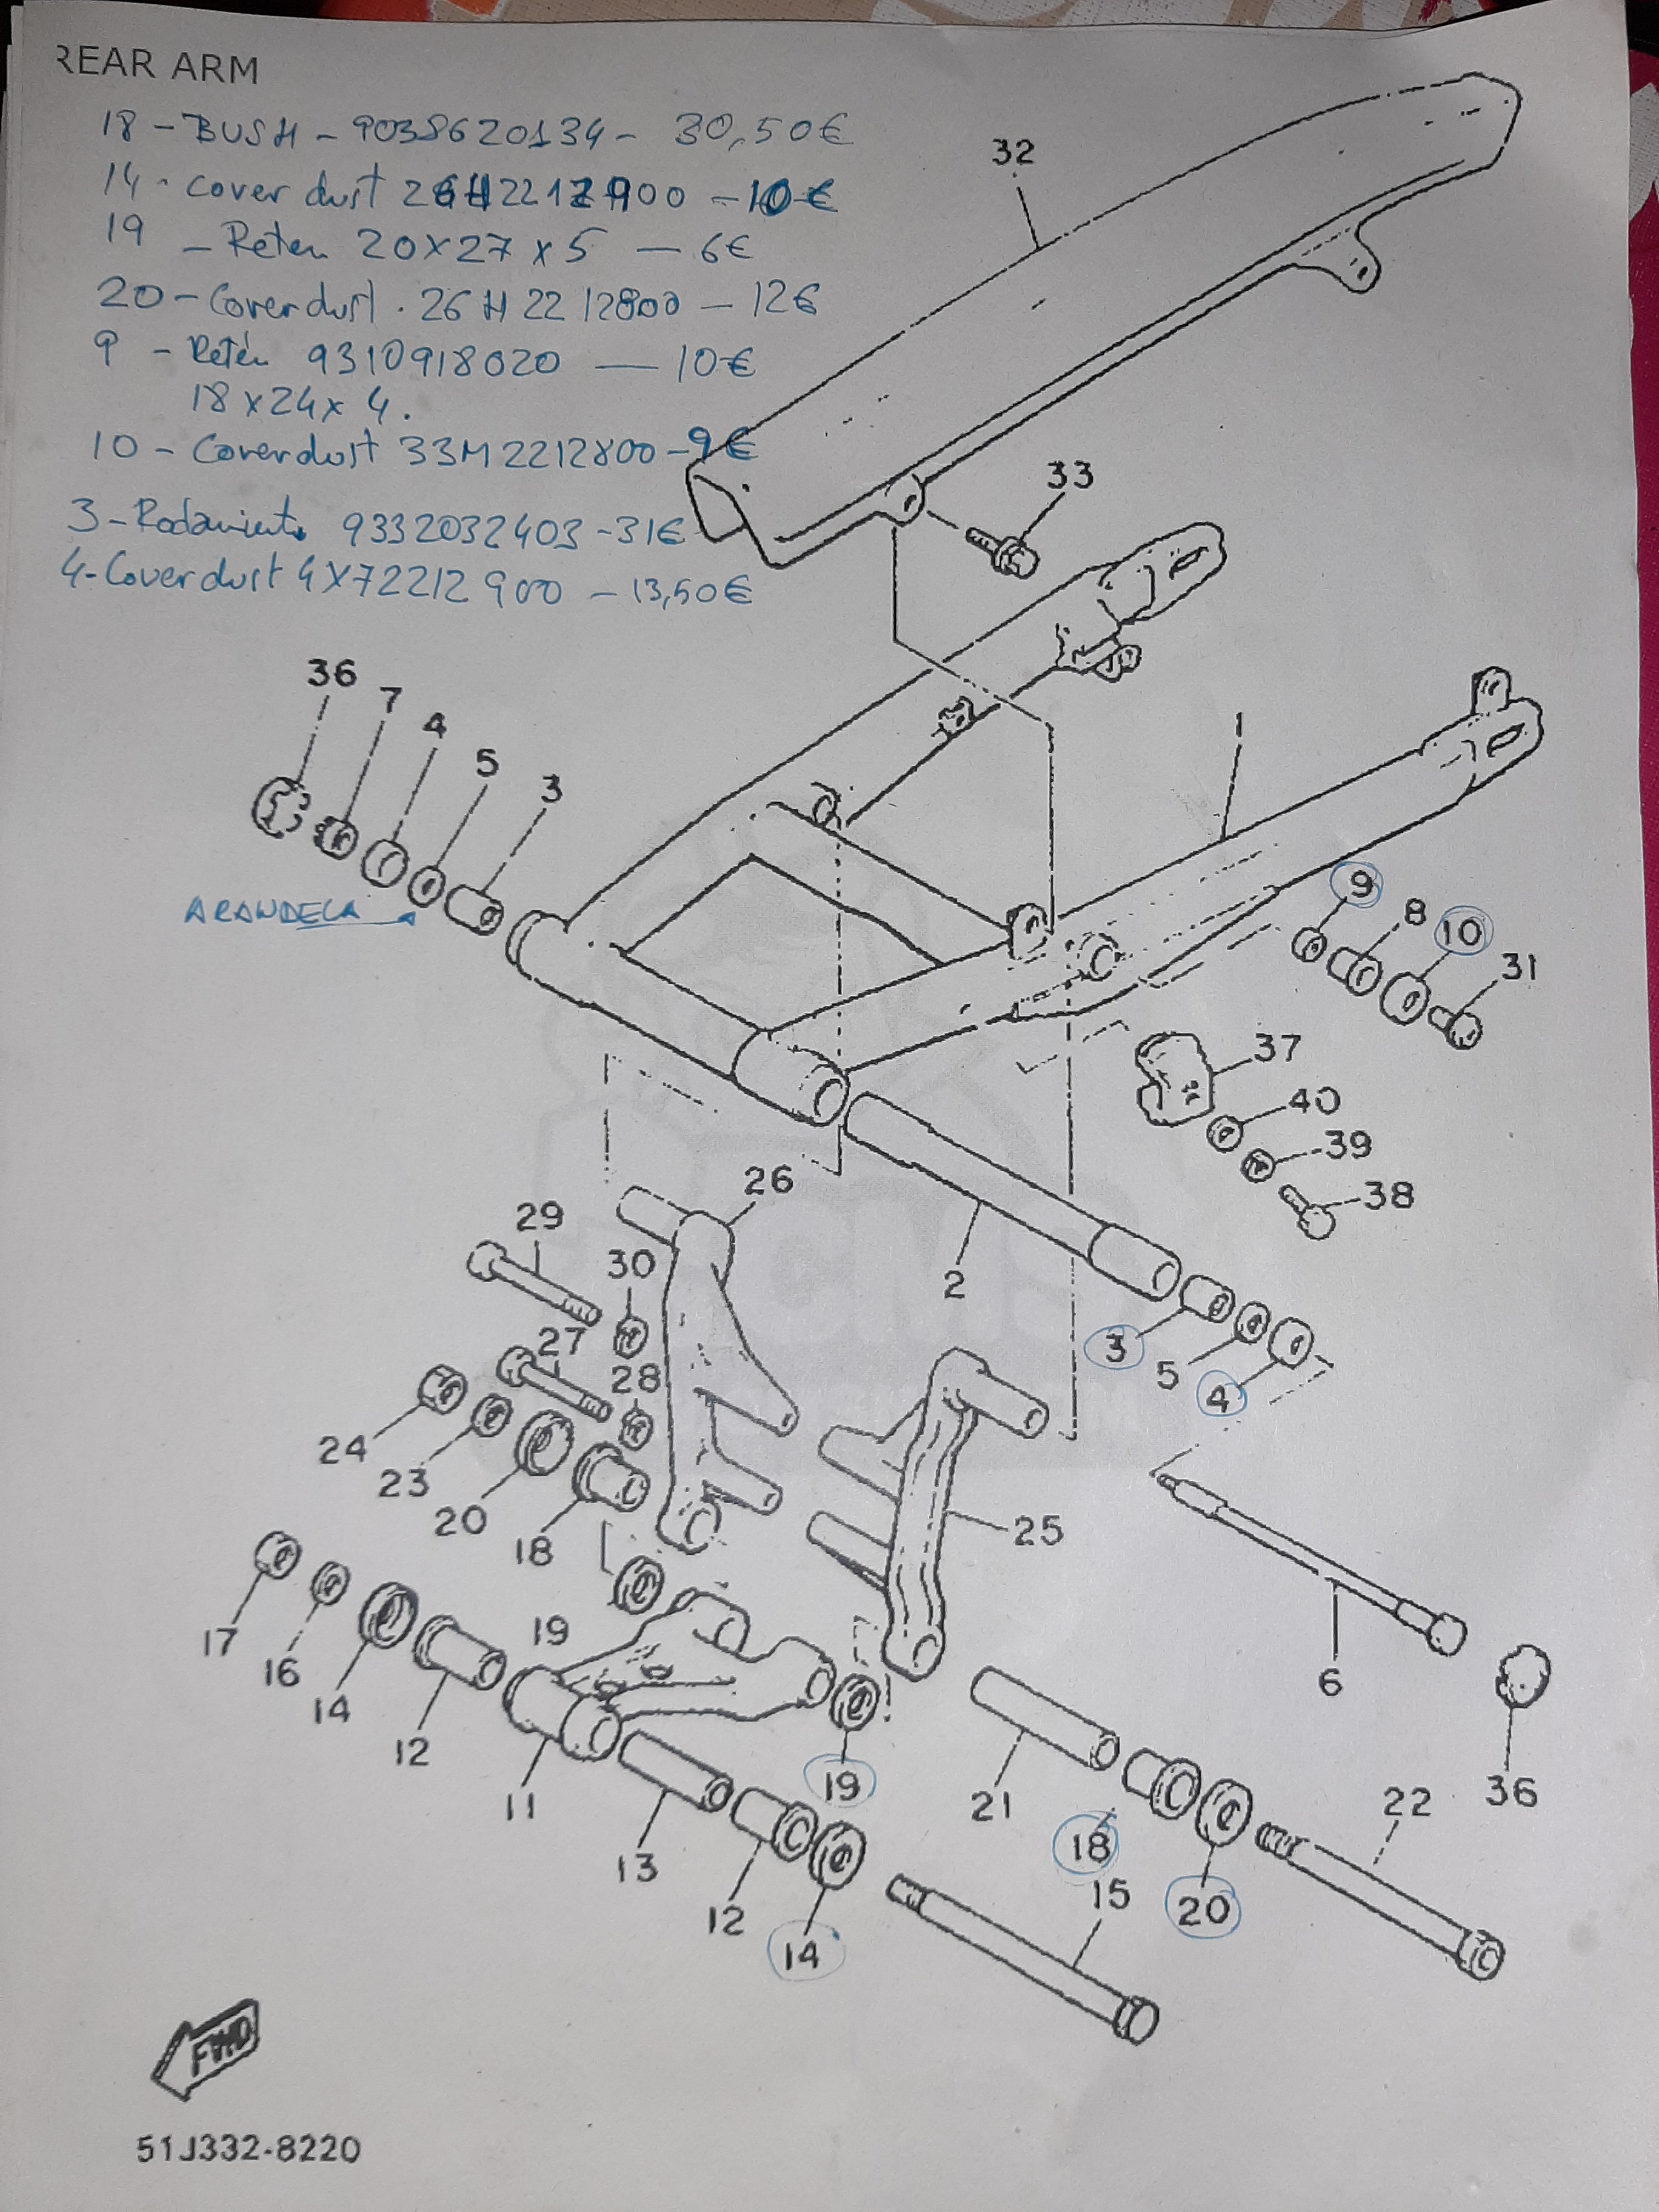 REAR ARM
18 - BUSH - 9038620134 - 30,50€
14 - cover dust 26H2212900 - 10€
19 - Reten 20x27x5 - 6€
20 - Coverdust. 26H2212800 - 12€
9 - Retén 9310918020 - 10€
18x24x4.
10 - Coverdust 33M2212800 - 9€
3 - Rodamiento 9332032403 - 31€
4 - Cover dust 4X72212900 - 13,50€
32
33
36
7
4
5
3
1
ARANDELA
9
8
10
31
37
40
39
38
26
29
30
2
27
28
3
5
4
24
23
20
18
25
17
16
19
14
12
6
11
19
21
36
13
18
22
12
15
20
14
FWD
51J332-8220